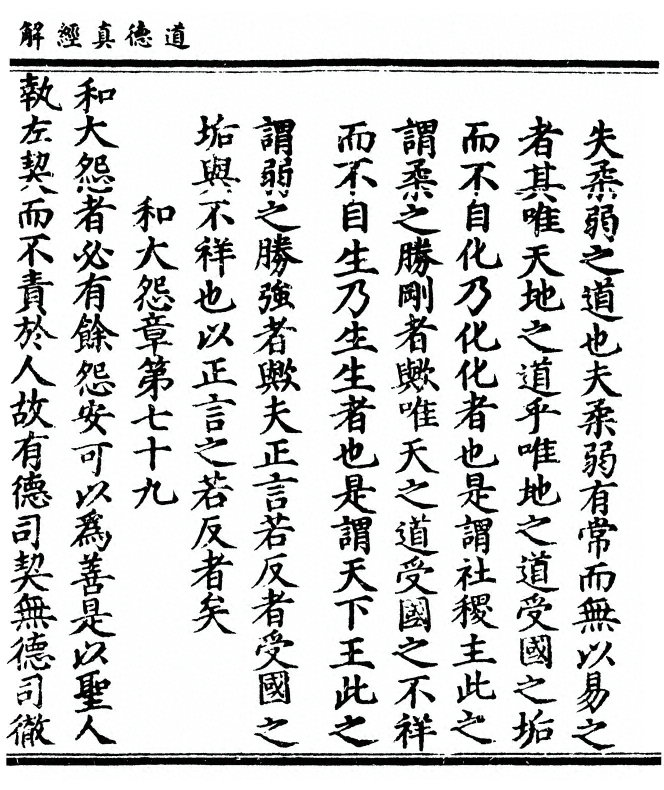 道德真經解
失柔弱之道也夫柔弱有常而無以易之
者其唯天地之道乎唯地之道受國之垢
而不自化乃化化者也是謂社稷主此之
謂柔之勝剛者歟唯天之道受國之不祥
而不自生乃生生者也是謂天下王此之
謂弱之勝強者歟夫正言若反者受國之
垢與不祥也以正言之若反者矣
和大怨章第七十九
和大怨者必有餘怨安可以為善是以聖人
執左契而不責於人故有德司契無德司徹